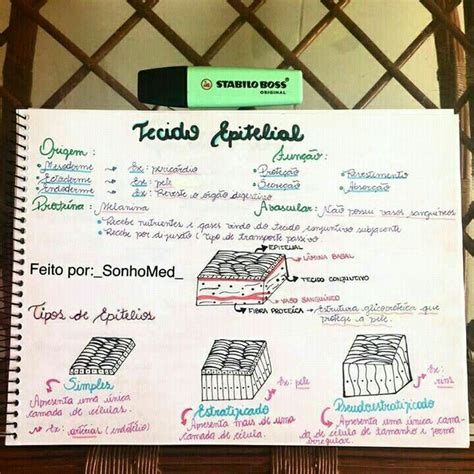 STABILO BOSS
ORIGINAL
Tecido Epitelial
Origem:
• Mesoderme → Ex: pericárdio
• Ectoderme → Ex: pele
• Endoderme → Ex: Reveste o órgão digestivo
Função:
• Proteção • Revestimento
• Secreção • Absorção
Proteína: Melanina
Avascular: Não possui vasos sanguíneos
• Recebe nutrientes e gases vindo do tecido conjuntivo subjacente
• Recebe por difusão (tipo de transporte passivo
Feito por:_SonhoMed_
EPITELIAL
LÂMINA BASAL
TECIDO CONJUNTIVO
VASO SANGUÍNEO
FIBRA PROTEICA → Estrutura glicoproteica que
protege a pele.
Tipos de Epitélios
Simples
Apresenta uma única
camada de células.
Ex: artérias (endotélio)
Ex: pele
Estratificado
Apresenta mais de uma
camada de célula.
Ex:
rins
Pseudoestratificado
Apresenta uma única cama-
da de célula de tamanho e forma
irregular.